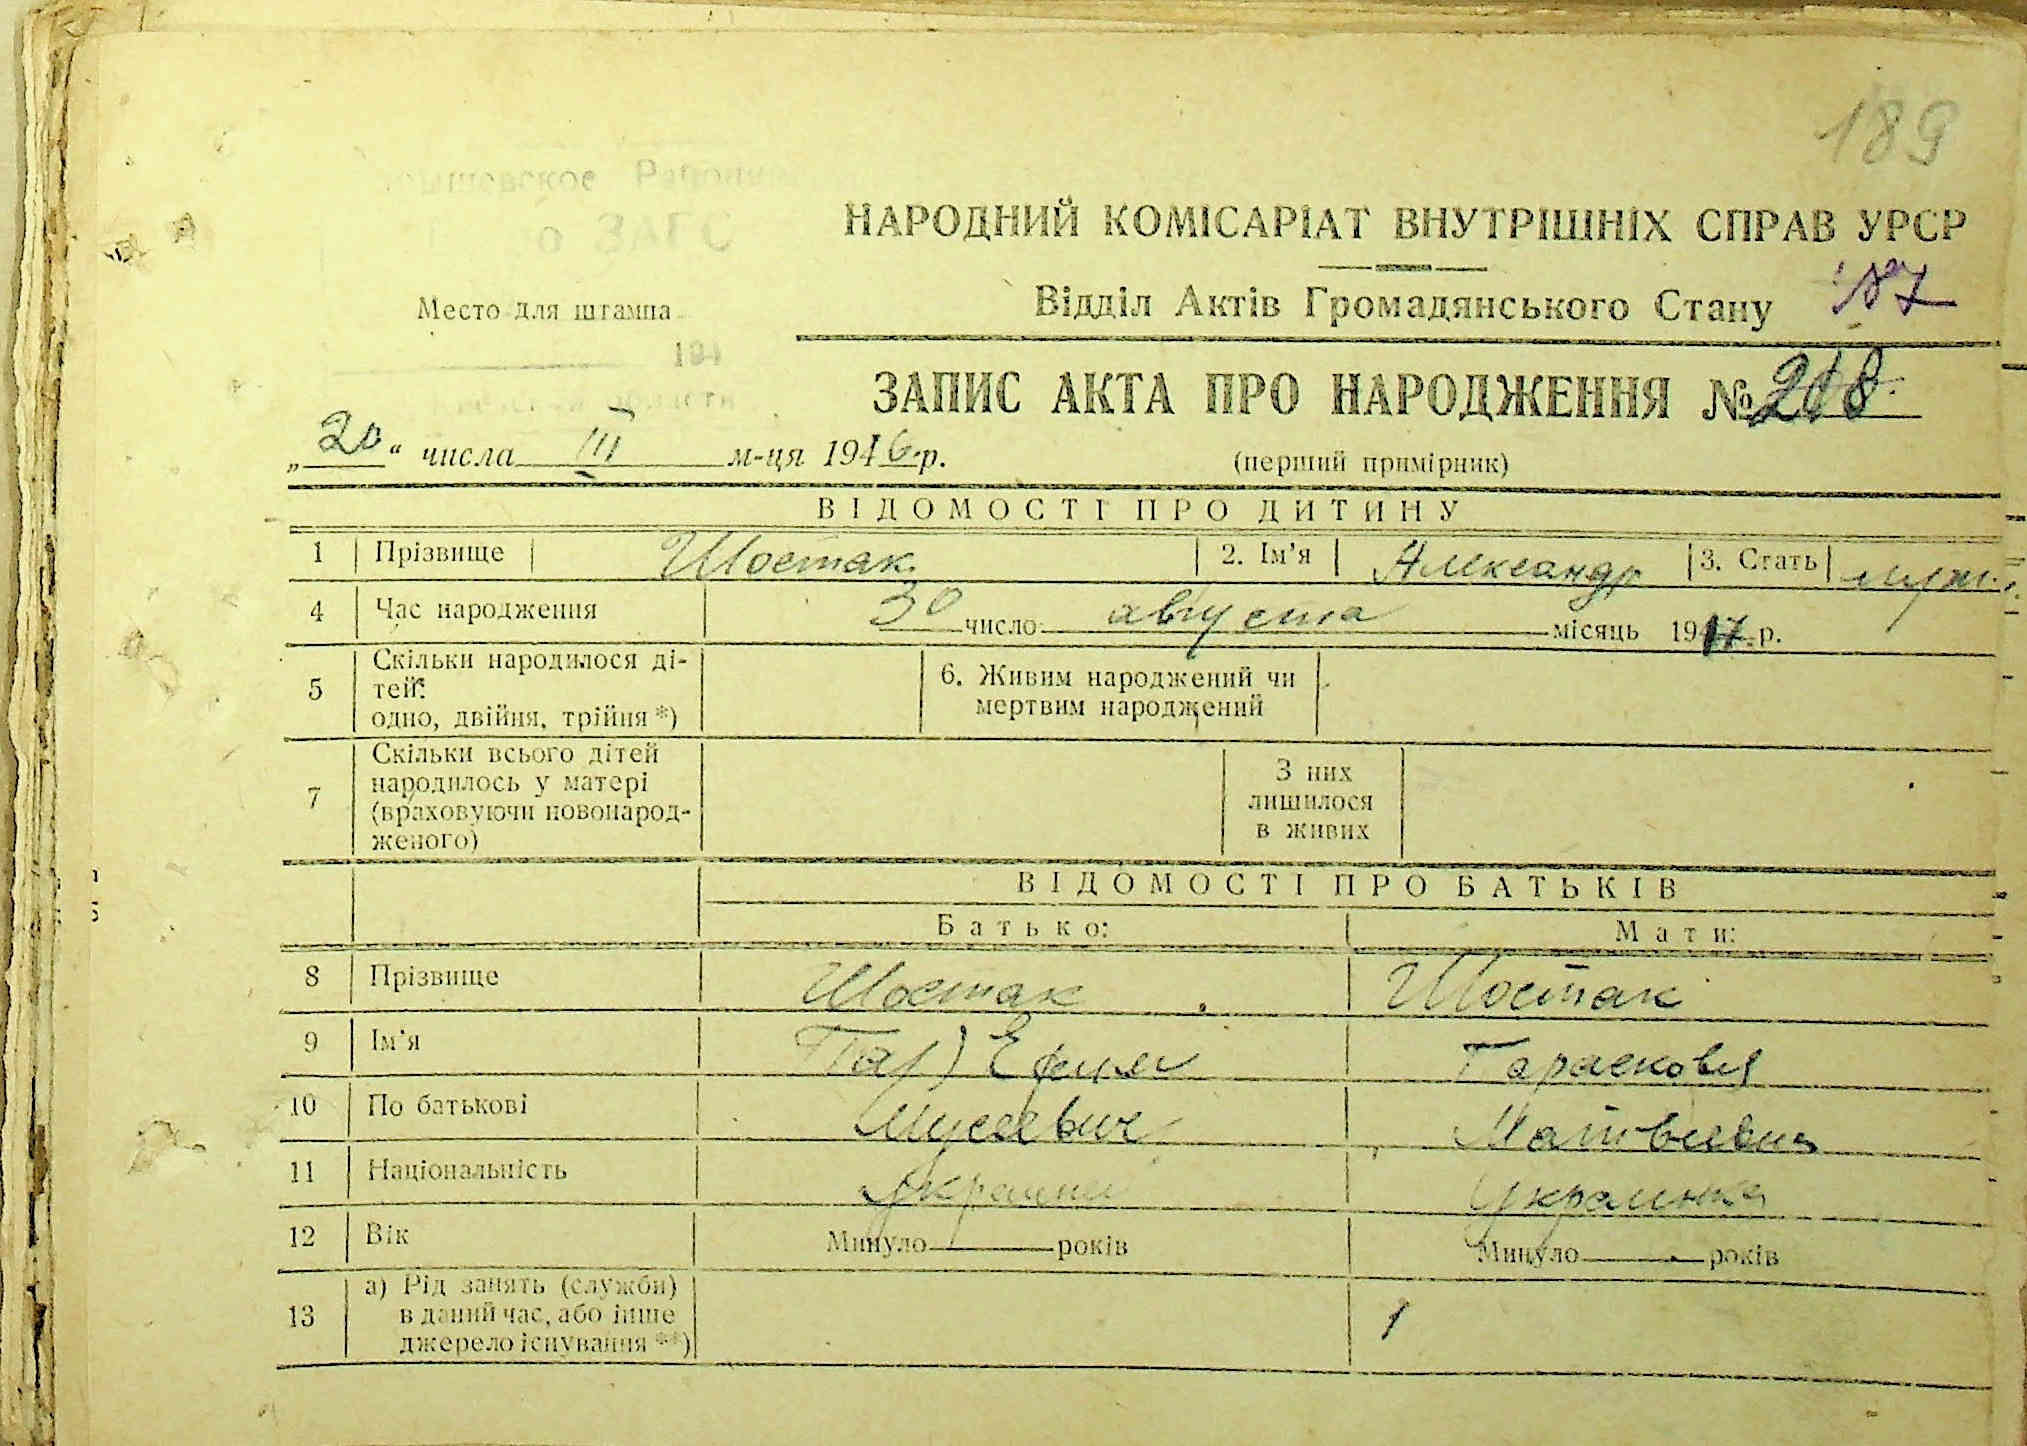 189
НАРОДНИЙ КОМІСАРІАТ ВНУТРІШНІХ СПРАВ УРСР
Відділ Актів Громадянського Стану 187
ЗАГС
Место для штампа
194
ЗАПИС АКТА ПРО НАРОДЖЕННЯ № 218
„20“ числа III м-ця 1946 р. (перший примірник)
ВІДОМОСТІ ПРО ДИТИНУ
1 Прізвище Шостак 2. Ім’я Александр 3. Стать муж.
4 Час народження 30 число августа місяць 1917 р.
5 Скільки народилося ді-
тей:
одно, двійня, трійня *)
6. Живим народжений чи
мертвим народжений
7 Скільки всього дітей
народилось у матері
(враховуючи новонарод-
женого)
З них
лишилося
в живих
ВІДОМОСТІ ПРО БАТЬКІВ
Батько: Мати:
8 Прізвище Шостак Шостак
9 Ім’я Ефим Парасковья
10 По батькові Мусеевич Матвеевна
11 Національність украинец Украинка
12 Вік Минуло років Минуло років
13 а) Рід занять (служби)
в даний час, або інше
джерело існування **)